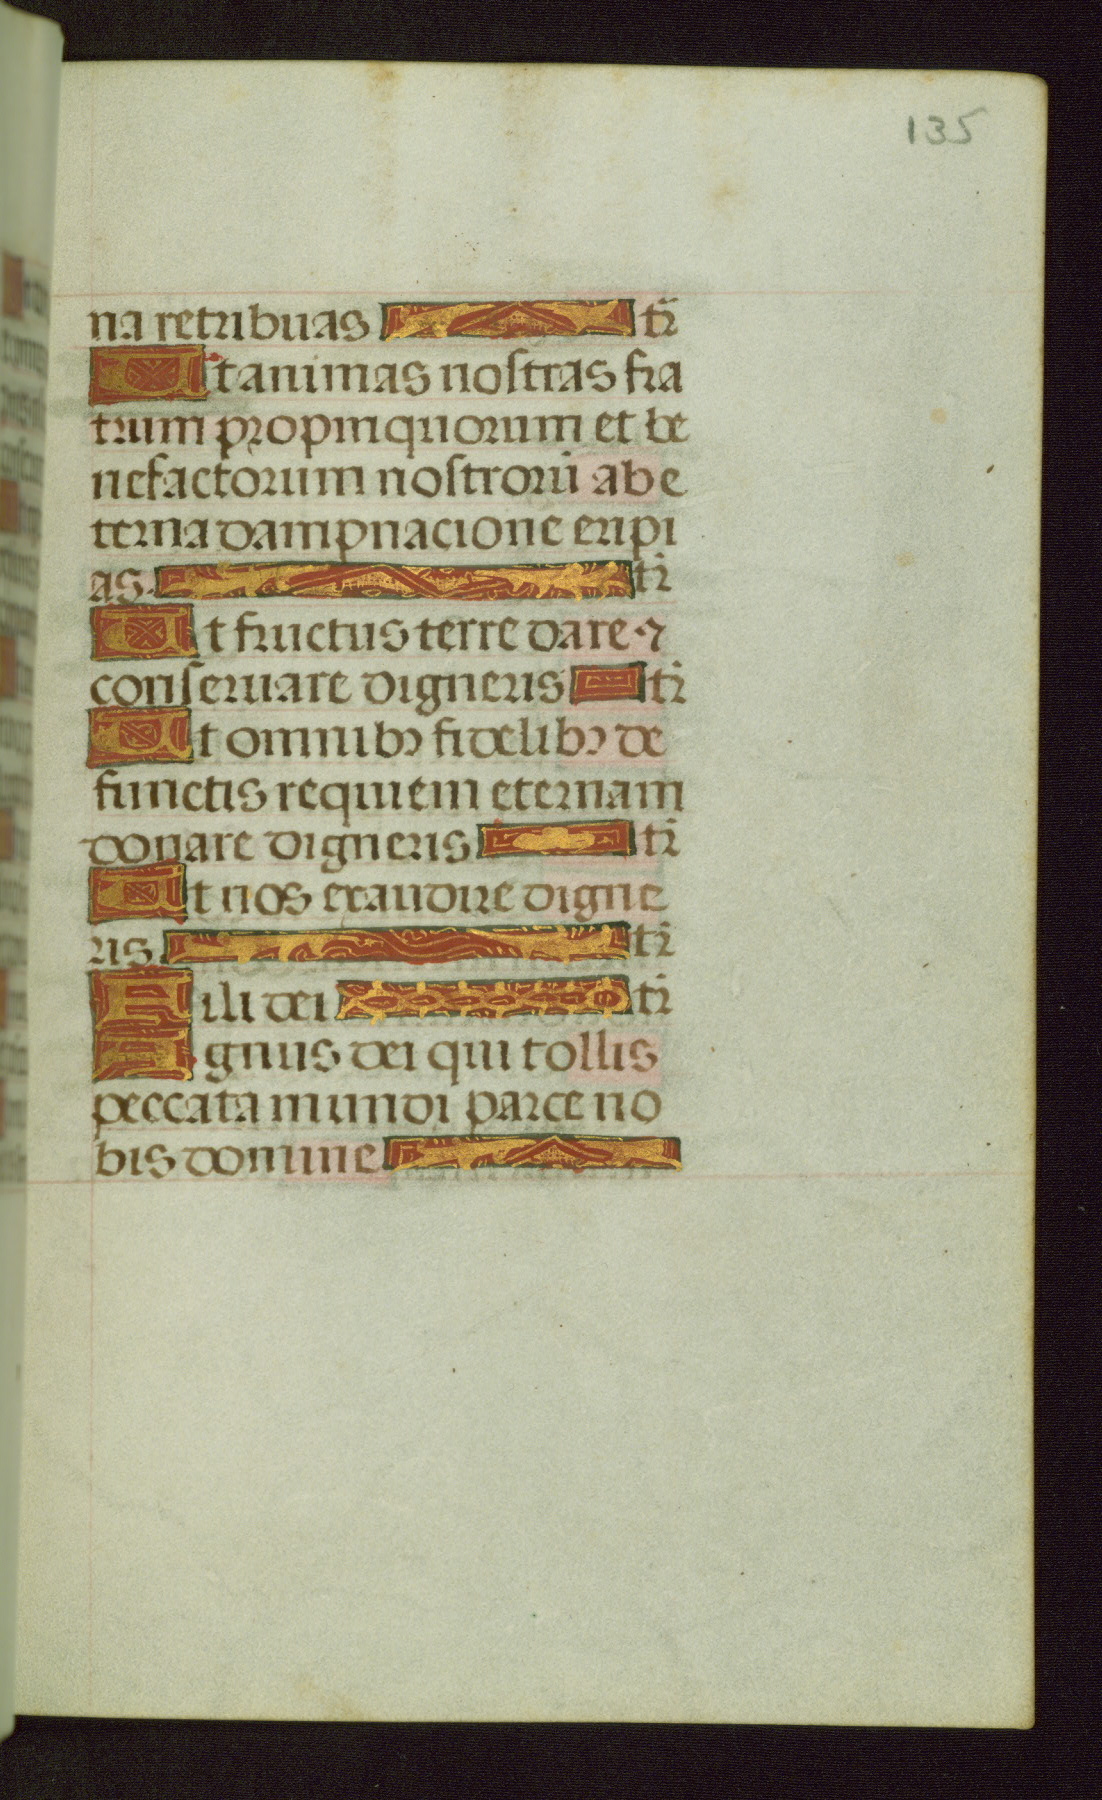 135
na retribuas tr̃
Ut animas nostras fra
trum propinquorum et be
nefactorum nostrorū ab e
terna dampnacione eripi
as. tr̃
Ut fructus terre dare ⁊
conseruare digneris tr̃
Ut omnibꝫ fidelibꝫ de
functis requiem eternam
donare digneris tr̃
Ut nos exaudire digne
ris. tr̃
Fili dei tr̃
Agnus dei qui tollis
peccata mundi parce no
bis domine